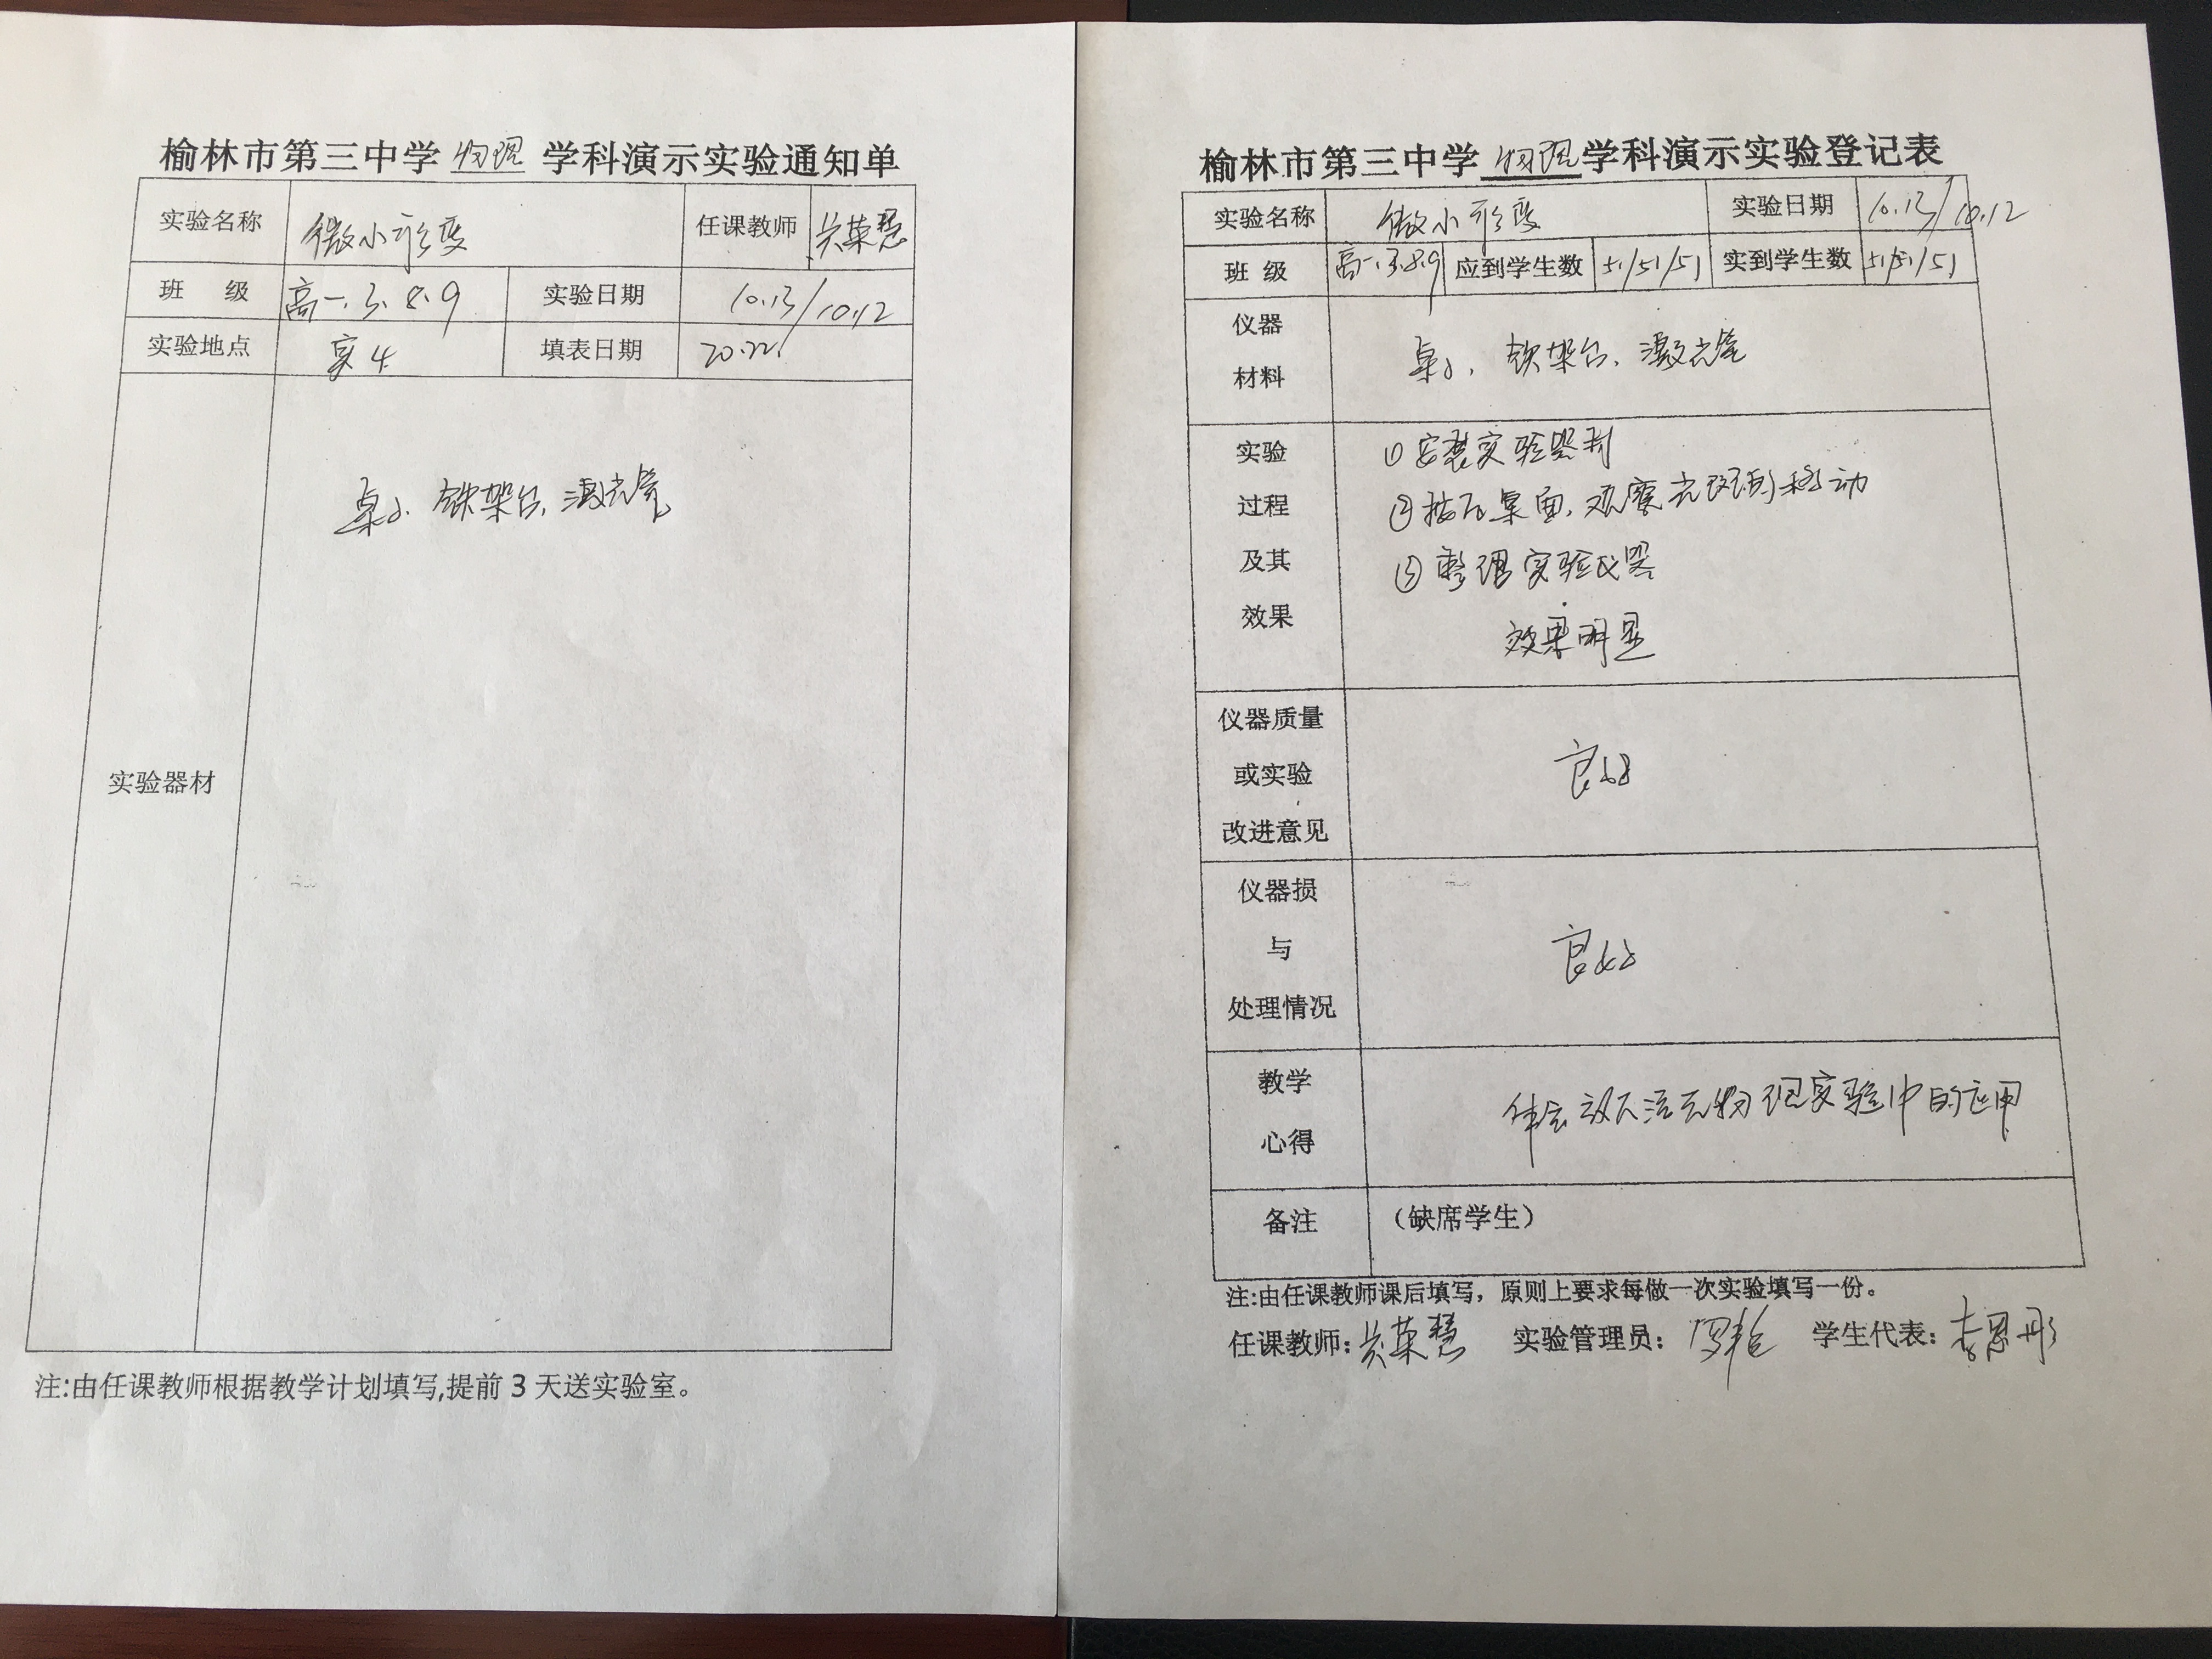 榆林市第三中学 物理 学科演示实验通知单
实验名称 微小形变 任课教师 荣慧
班 级 高一.3.8.9 实验日期 10.13/10.12
实验地点 实4 填表日期
实验器材 桌子、铁架台、激光笔
注:由任课教师根据教学计划填写,提前3天送实验室。
榆林市第三中学 物理 学科演示实验登记表
实验名称 微小形变 实验日期 10.13/10.12
班 级 高一.3.8.9 应到学生数 51/51/51 实到学生数 51/51/51
仪器
材料
桌子、铁架台、激光笔
实验
过程
及其
效果
①安装实验器材
②按压桌面,观察光斑的移动
③整理实验仪器
效果明显
仪器质量
或实验
改进意见
良好
仪器损
与
处理情况
良好
教学
心得
体会放大法在物理实验中的应用
备注 （缺席学生）
注:由任课教师课后填写，原则上要求每做一次实验填写一份。
任课教师: 荣慧 实验管理员: 学生代表: 李思彤